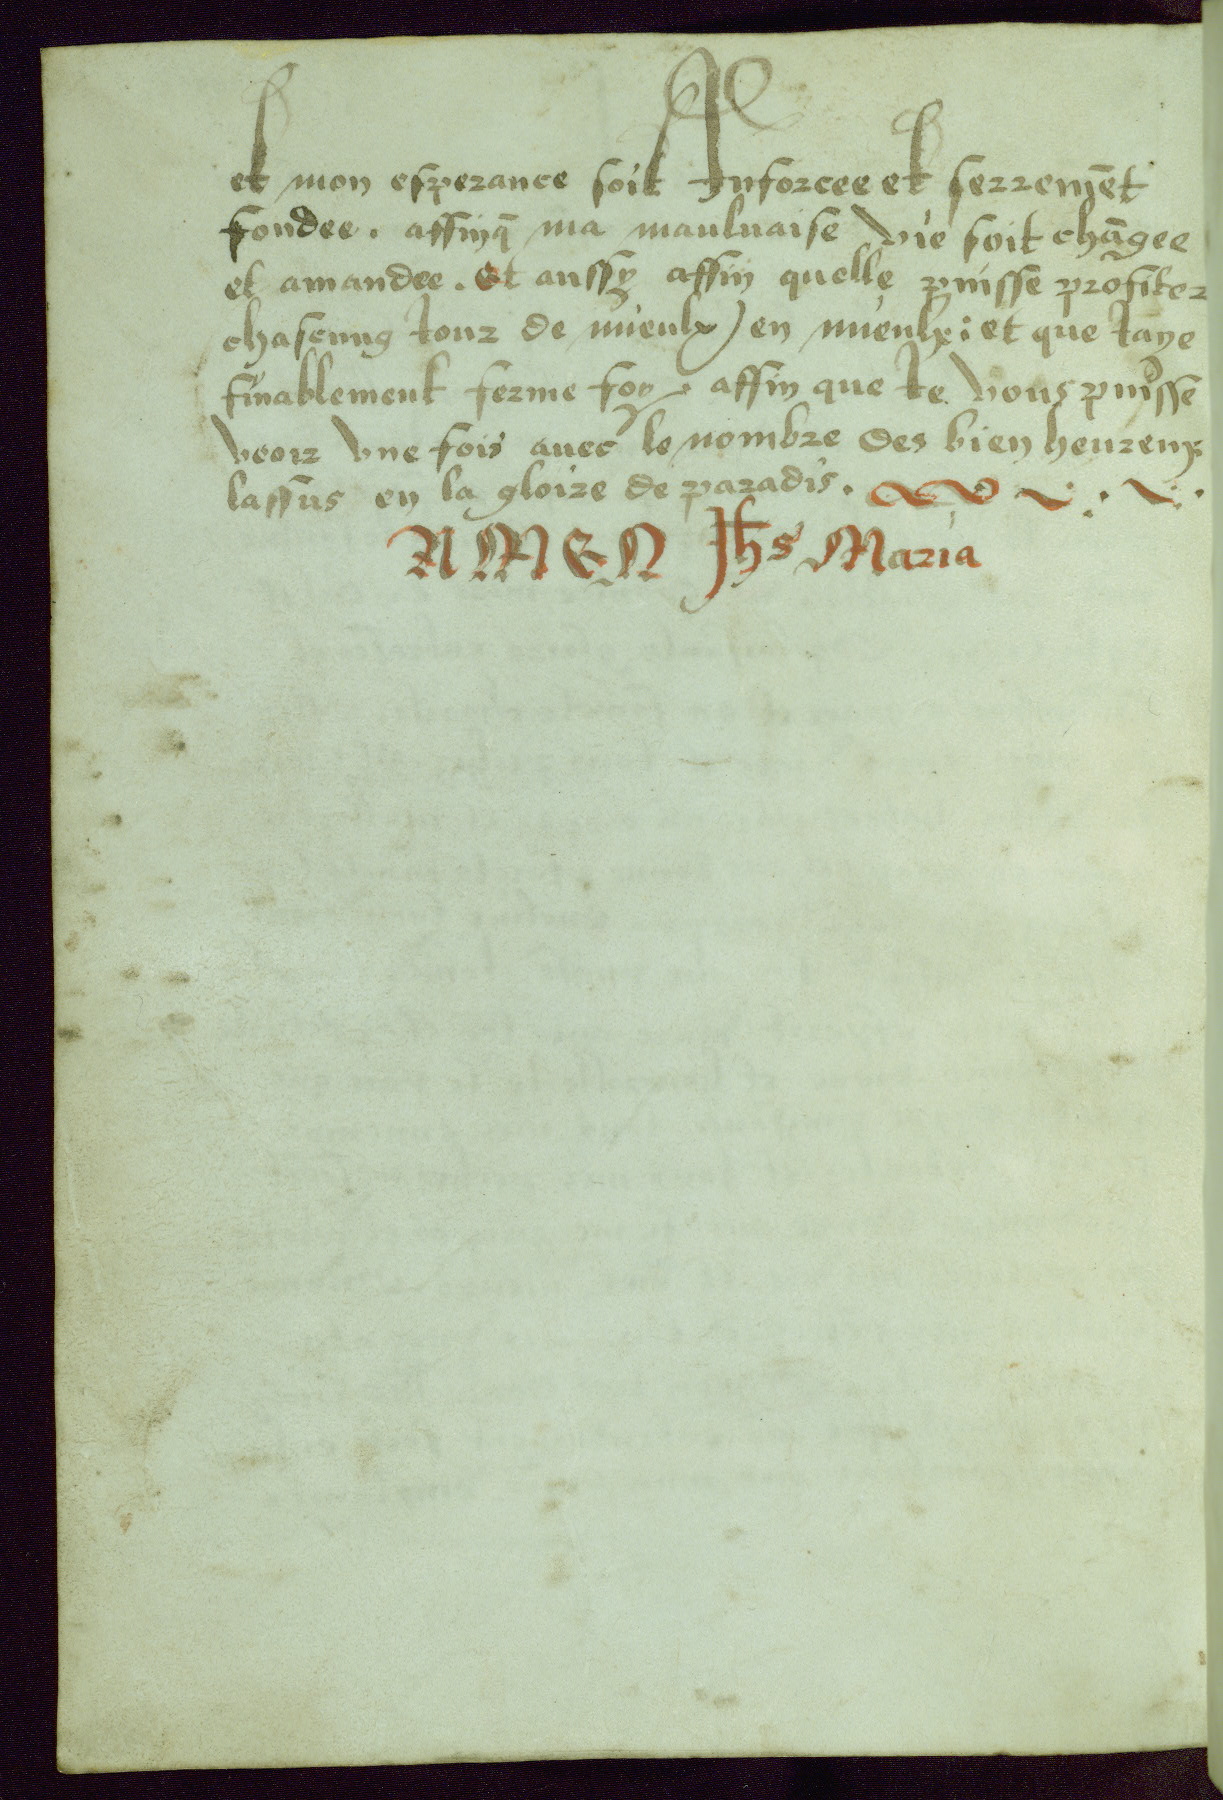 et mon esperance soit Inforcee et ferremēt
fondee . affinq̄ ma mauluaise vie soit chāgee
et amandee . Et aussy affin quelle puisse proffiter
chascung Iour de mieulx en mieulx : et que Iaye
finablement ferme foy . affin que Ie vous puisse
veoir vne fois auec le nombre des bien heureux
lassus en la gloire de paradis .
AMEN Jhs Maria